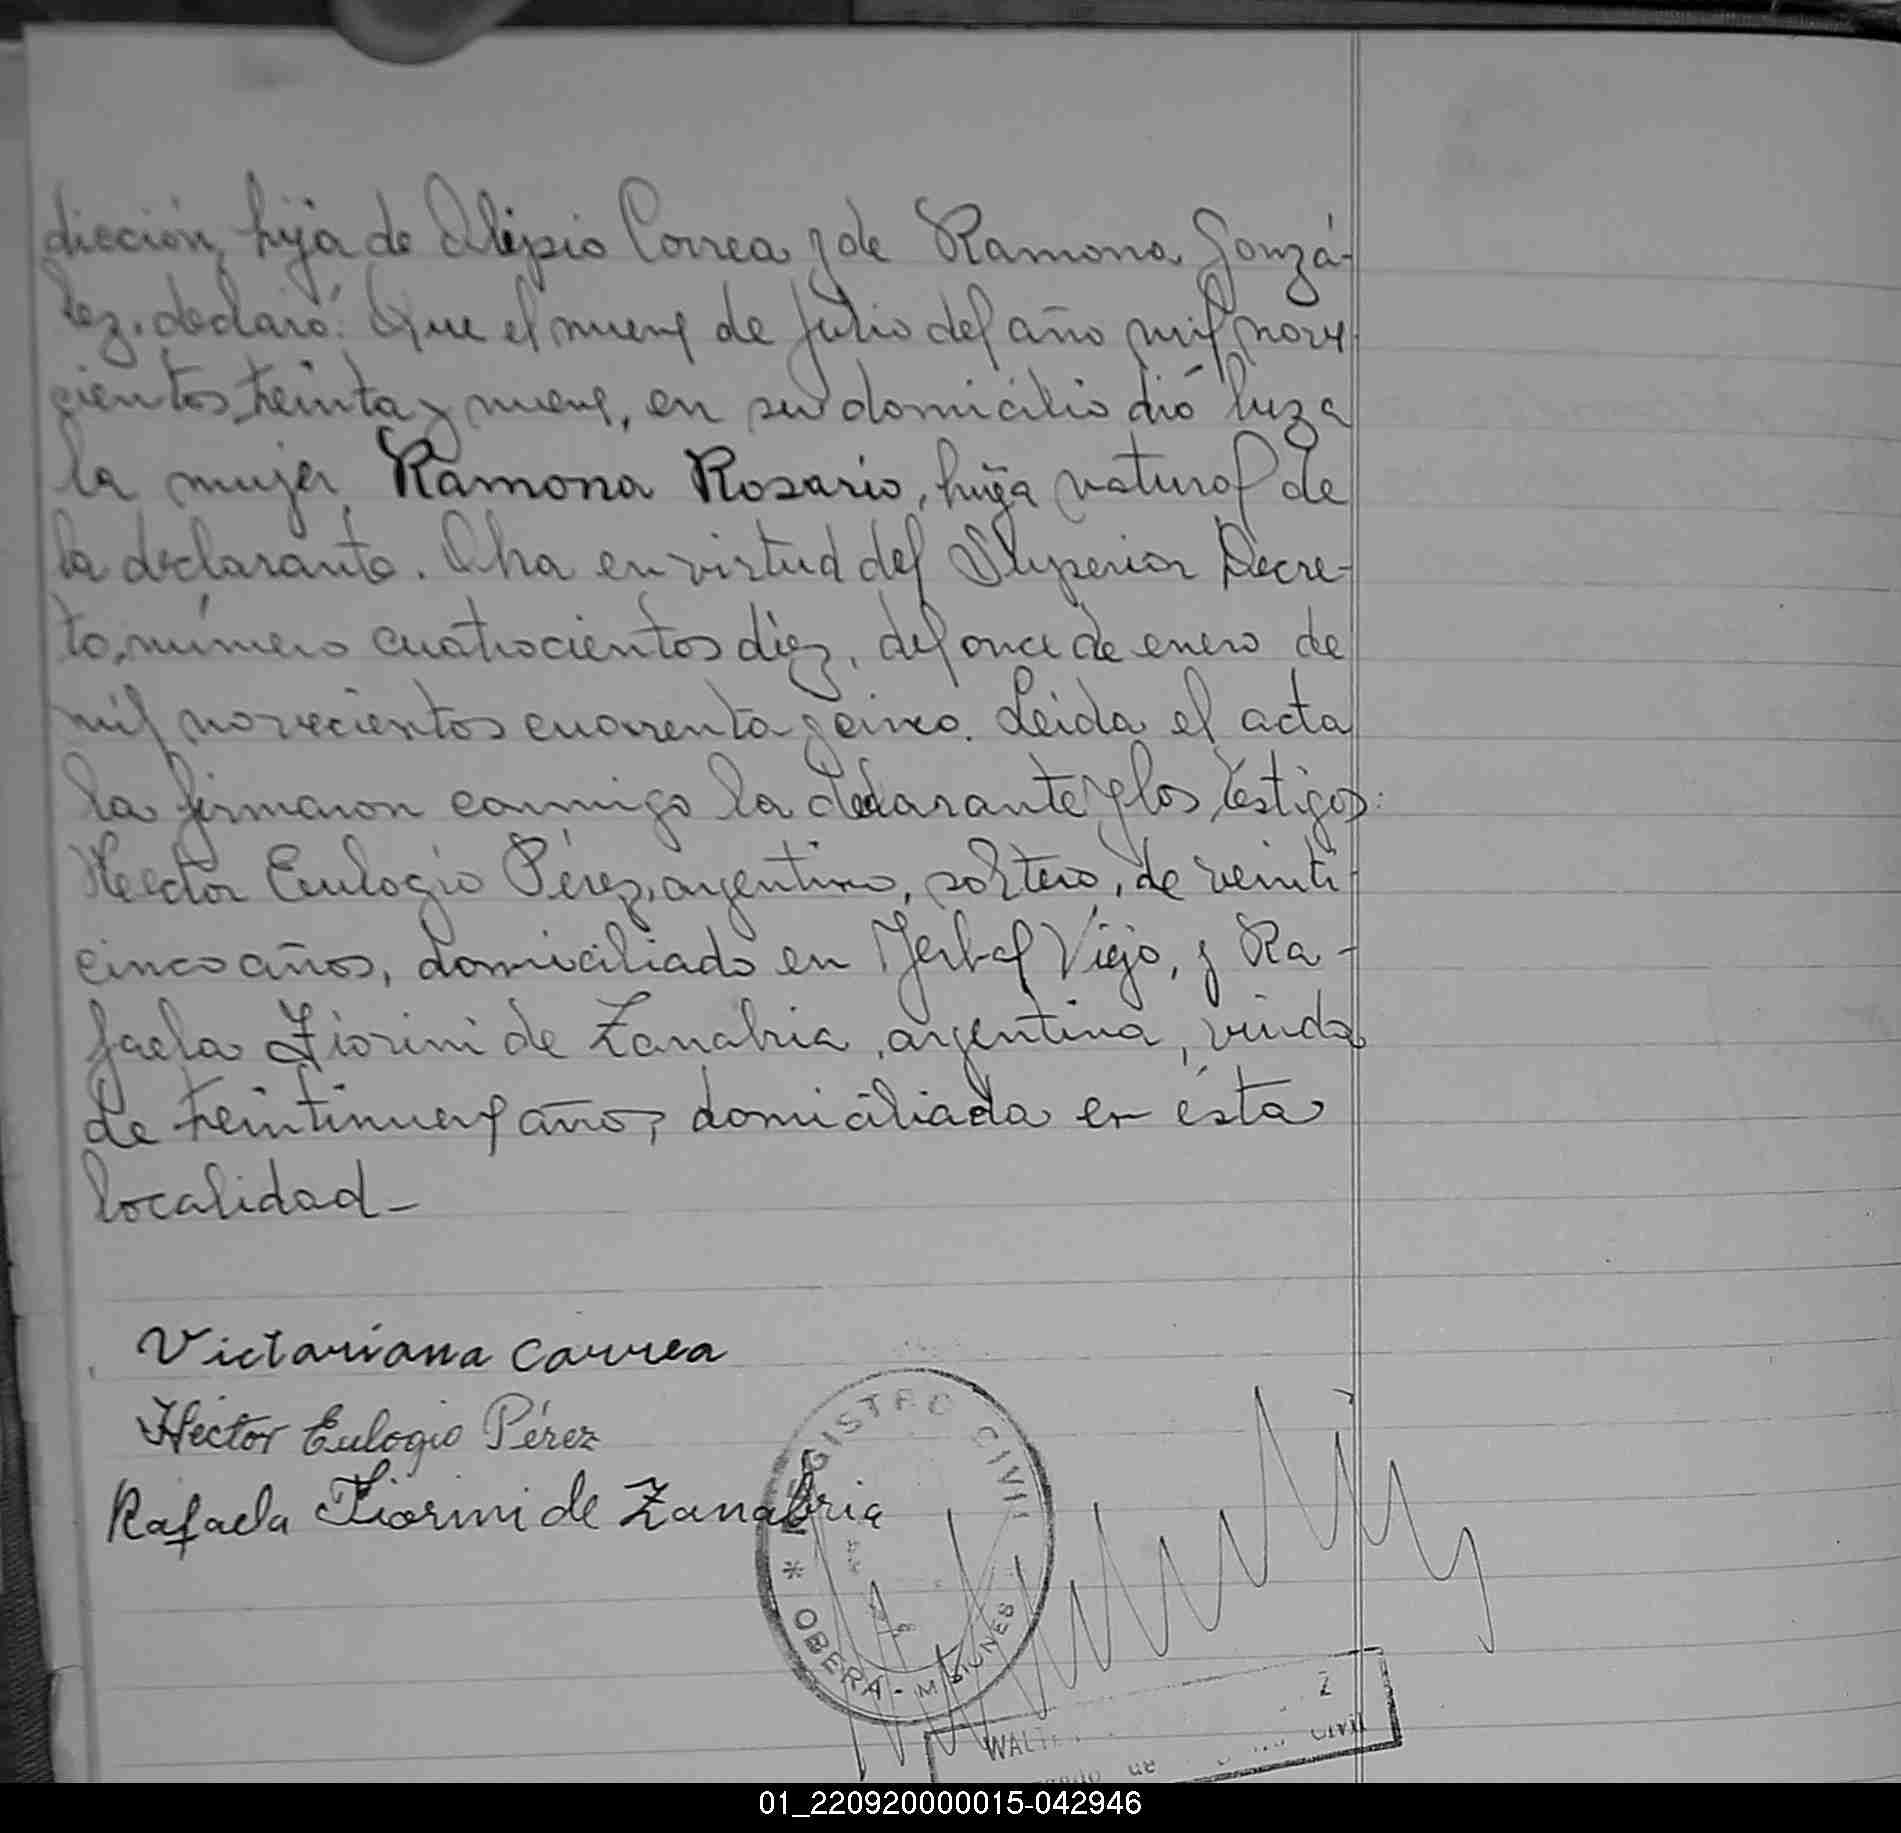 dicción, hija de Alipio Correa y de Ramona Gonzá-
lez, declaró: Que el nueve de Julio del año mil nove
cientos treinta y nueve, en su domicilio dió luz a
la mujer Ramona Rosario, hija natural de
la declarante. Acta en virtud del Superior Decre-
to, número cuatrocientos diez, del once de enero de
mil novecientos cuarenta y cinco. Leida el acta
la firmaron conmigo la declarante y los testigos:
Hector Eulogio Pérez, argentino, soltero, de veinti
cinco años, domiciliado en Yerbal Viejo, y Ra-
faela Fiorini de Zanabria, argentina, viuda
de treintinueve años, domiciliada en ésta
localidad_
Victoriana Correa
Héctor Eulogio Pérez
Rafaela Fiorini de Zanabria
REGISTRO CIVIL
* OBERA - MISIONES
CIVIL
01_220920000015-042946